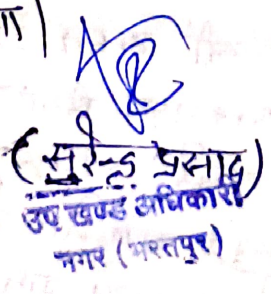 (सुरेन्द्र प्रसाद)
उप खण्ड अधिकारी
नगर (भरतपुर)